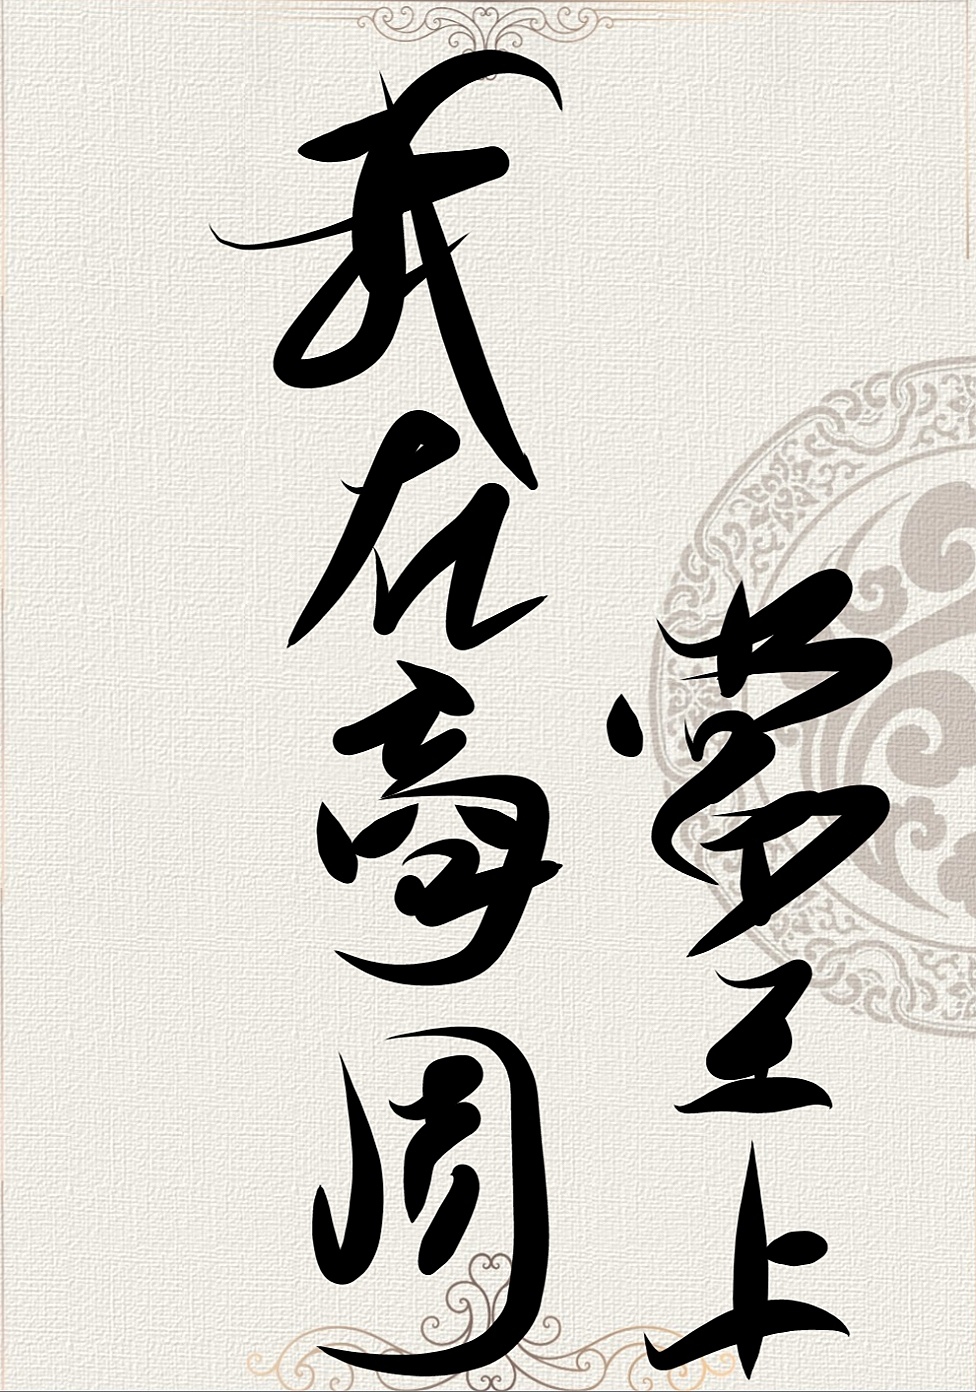 我在商周
王上